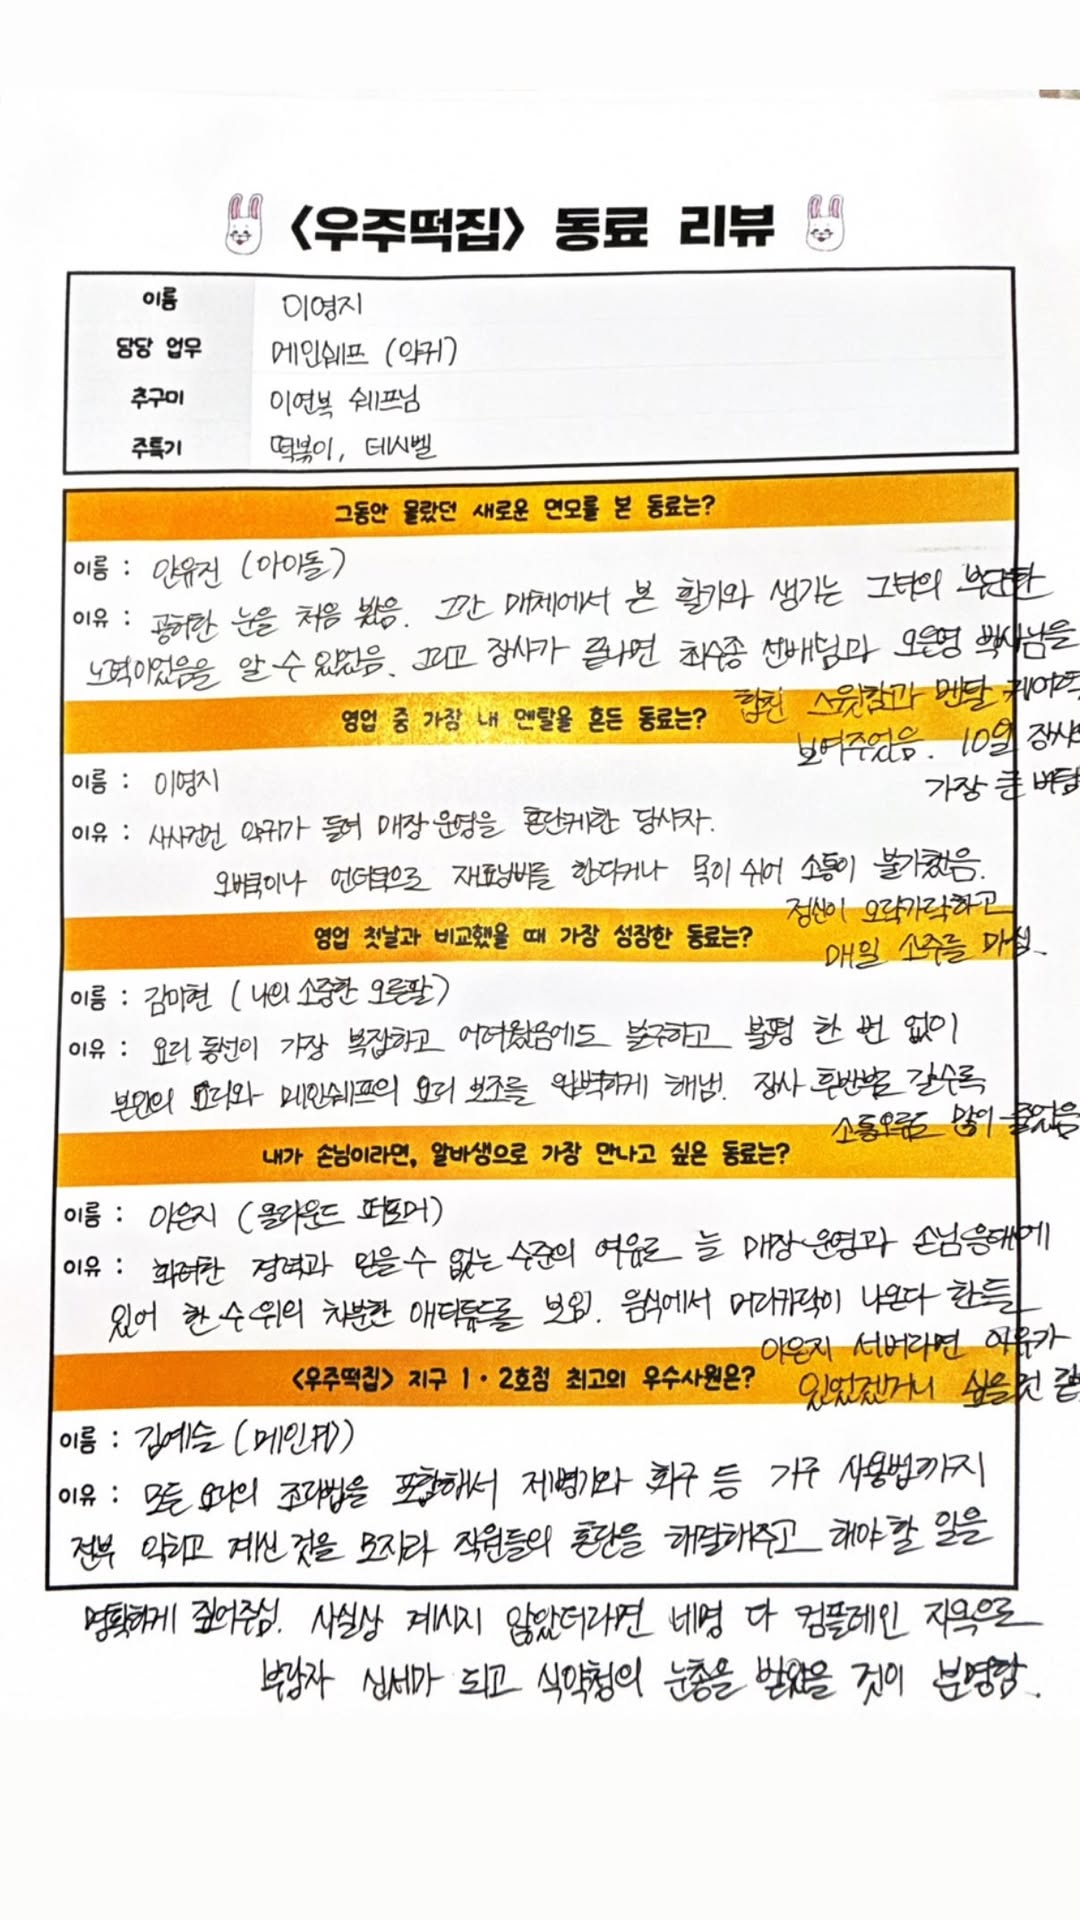 <우주떡집> 동료 리뷰
이름 이영지
담당 업무 메인쉐프 (악귀)
추구미 이연복 쉐프님
주특기 떡볶이, 데시벨
그동안 몰랐던 새로운 면모를 본 동료는?
이름 : 안유진 (아이돌)
이유 : 공허한 눈을 처음 봤음. 그간 매체에서 본 활기와 생기는 그녀의 부단한
노력이었음을 알 수 있었음. 그리고 장사가 끝나면 최수종 선배님과 오은영 박사님을
합친 스윗함과 멘탈 케어를
보여주었음. 10일 장사의
가장 큰 버팀
영업 중 가장 내 멘탈을 흔든 동료는?
이름 : 이영지
이유 : 사사건건 악귀가 들려 매장 운영을 혼란케한 당사자.
오버쿡이나 언더쿡으로 재료낭비를 한다거나 목이 쉬어 소통이 불가했음.
정신이 오락가락하고
매일 소주를 마심.
영업 첫날과 비교했을 때 가장 성장한 동료는?
이름 : 김미현 (나의 소중한 오른팔)
이유 : 요리 동선이 가장 복잡하고 어려웠음에도 불구하고 불평 한 번 없이
본인의 요리와 메인쉐프의 요리 보조를 완벽하게 해냄. 장사 후반부로 갈수록
소통오류도 많이 줄었음
내가 손님이라면, 알바생으로 가장 만나고 싶은 동료는?
이름 : 이은지 (올라운드 퍼포머)
이유 : 화려한 경력과 믿을 수 없는 수준의 여유로 늘 매장 운영과 손님응대에
있어 한 수 위의 차분한 애티튜드를 보임. 음식에서 머리카락이 나온다 한들
이은지 서버라면 이유가
있었겠거니 싶을 것 같
<우주떡집> 지구 1·2호점 최고의 우수사원은?
이름 : 김예슬 (메인PD)
이유 : 모든 요리의 조리법을 포함해서 제빙기와 화구 등 가구 사용법까지
전부 익히고 계신 것을 모자라 직원들의 혼란을 해결해주고 해야 할 일을
명확하게 짚어주심. 사실상 계시지 않았더라면 네명 다 컴플레인 지옥으로
부랑자 신세가 되고 식약청의 눈총을 받았을 것이 분명함.